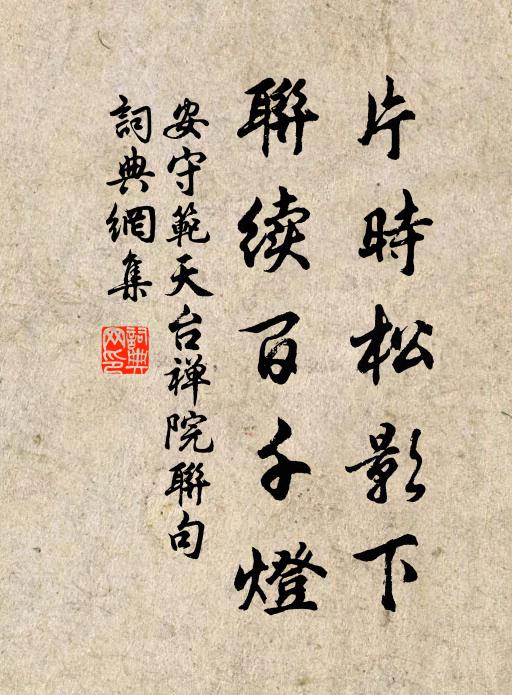 片時松影下
聯续百千燈
安守範天台禅院聯句
詞典網集
詞典网印